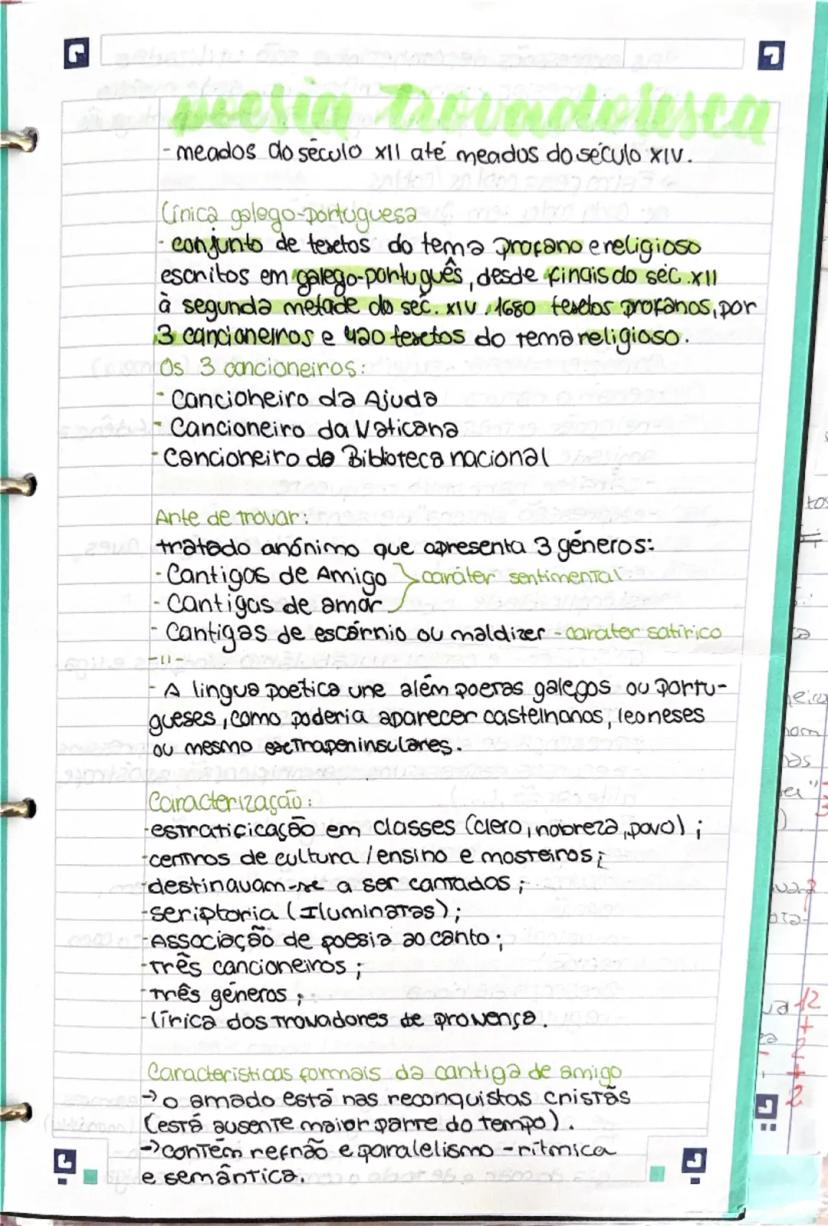 poesia trovadoresca
- meados do século XII até meados do século XIV.
Lírica galego-portuguesa
- conjunto de textos do tema profano e religioso
escritos em galego-português, desde finais do séc. XII
à segunda metade do séc. XIV, 1680 textos profanos, por
3 cancioneiros e 420 textos do tema religioso.
Os 3 cancioneiros:
- Cancioneiro da Ajuda
- Cancioneiro da Vaticana
- Cancioneiro da Biblioteca nacional
Arte de trovar:
tratado anónimo que apresenta 3 géneros:
- Cantigas de Amigo
caráter sentimental
- Cantigas de amor
- Cantigas de escárnio ou maldizer - carater satírico
-11-
- A lingua poética une além poetas galegos ou portu-
gueses, como poderia aparecer castelhanos, leoneses
ou mesmo extrapeninsulares.
Caracterização:
- estratificação em classes (clero, nobreza, povo);
- centros de cultura / ensino e mosteiros;
- destinavam-se a ser cantados;
- seriptoria (Iluminatas);
- Associação de poesia ao canto;
- três cancioneiros;
- três géneros;
- lírica dos trovadores de provença.
Características formais da cantiga de amigo
→ o amado está nas reconquistas cristãs
(está ausente maior parte do tempo).
→ contém refrão e paralelismo - rítmica
e semântica.